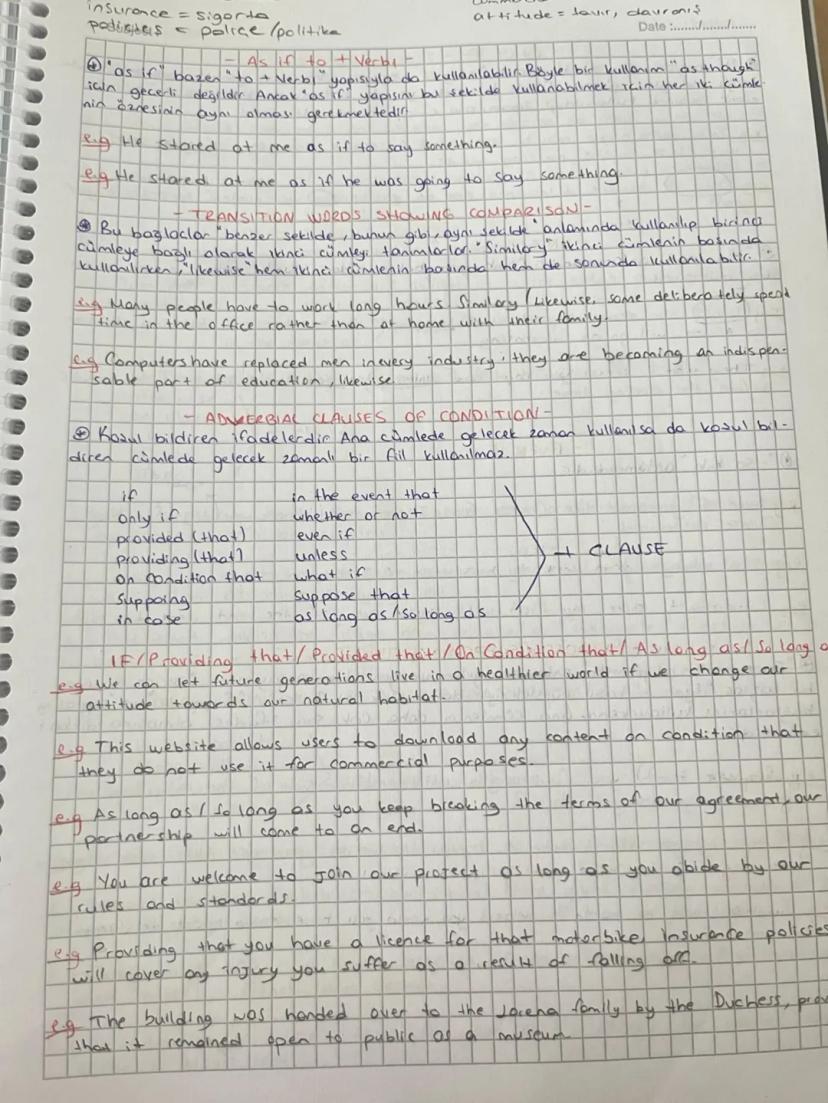 insurance = sigorta
attitude = tavır, davranış
= police/politika
Date :......./......./.......
- As if to + Verb1 -
"as if" bazen "to + Verb1" yapısıyla da kullanılabilir. Böyle bir kullanım "as though"
için geçerli değildir. Ancak "as if" yapısını bu şekilde kullanabilmek için her iki cümle-
nin öznesinin aynı olması gerekmektedir.
e.g He stared at me as if to say something.
e.g He stared at me as if he was going to say something.
- TRANSITION WORDS SHOWING COMPARISON -
Bu bağlaçlar "benzer şekilde, bunun gibi, aynı şekilde" anlamında kullanılıp birinci
cümleye bağlı olarak ikinci cümleyi tanımlarlar. "Similary" ikinci cümlenin başında
kullanılırken, "likewise" hem ikinci cümlenin başında hem de sonunda kullanılabilir.
e.g Many people have to work long hours Similary / Likewise, some deliberately spend
time in the office rather than at home with their family.
e.g Computers have replaced men in every industry, they are becoming an indispen-
sable part of education, likewise.
- ADVERBIAL CLAUSES OF CONDITION -
Koşul bildiren ifadelerdir. Ana cümlede gelecek zaman kullanılsa da koşul bil-
diren cümlede gelecek zamanlı bir fiil kullanılmaz.
if in the event that
only if whether or not
provided (that) even if
providing (that) unless + CLAUSE
on condition that what if
suppoing suppose that
in case as long as / so long as
IF / Providing that / Provided that / On Condition that / As long as / So long a
e.g We can let future generations live in a healthier world if we change our
attitude towards our natural habitat.
e.g This website allows users to download any content on condition that
they do not use it for commercial purposes.
e.g As long as / so long as you keep breaking the terms of our agreement, our
partnership will come to an end.
e.g You are welcome to join our project as long as you abide by our
rules and standards.
e.g Providing that you have a licence for that motorbike, insurance policies
will cover any injury you suffer as a result of falling
e.g The building was handed over to the family by the Duchess, prov
that it remained open to public as a museum